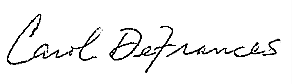 Carol DeFrances